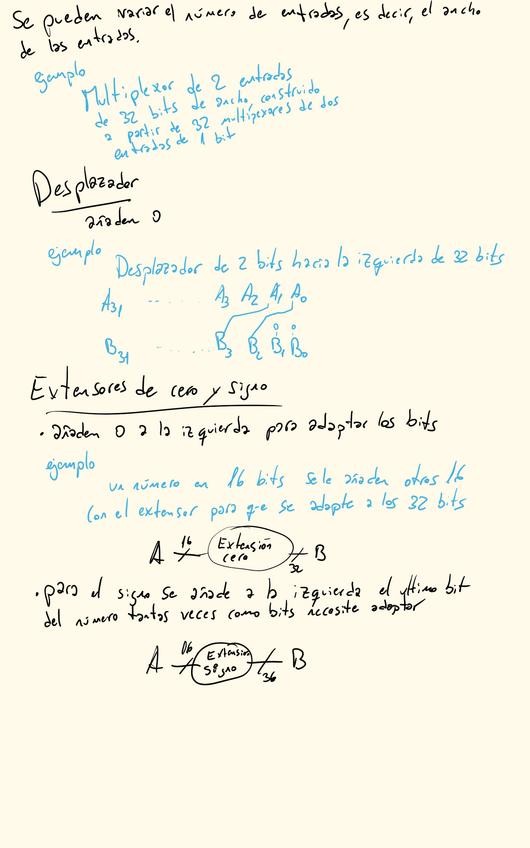 Se pueden variar el número de entradas, es decir, el ancho
de las entradas.
ejemplo
Multiplexor de 2 entradas
de 32 bits de ancho, construido
a partir de 32 multiplexores de dos
entradas de 1 bit
Desplazador
añaden 0
ejemplo
Desplazador de 2 bits hacia la izquierda de 32 bits
A31 ... A3 A2 A1 A0
0 0
B31 ... B3 B2 B1 B0
Extensores de cero y signo
· añaden 0 a la izquierda para adaptar los bits
ejemplo
un número en 16 bits se le añaden otros 16
con el extensor para que se adapte a los 32 bits
A 16 Extensión cero 32 B
· para el signo se añade a la izquierda el ultimo bit
del número tantas veces como bits necesite adaptar
A 16 Extensión signo 36 B